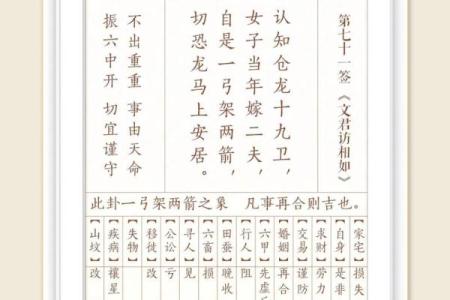 第七十一签 《文君访相如》
认知仓龙十九卫，
女子当年嫁二夫，
自是一弓架两箭，
切恐龙马上安居。
不出重重 事由天命
振六中开 切宜谨守
此卦一弓架两箭之象 凡事再合则吉也。
【家宅】损失
【自身】是非
【求财】劳力
【交易】谨防
【婚姻】再合
【六甲】先虚
【行人】阻
【田蚕】晚收
【六畜】损
【寻人】见
【公讼】亏
【移徙】改
【失物】
【疾病】禳星
【山坟】改